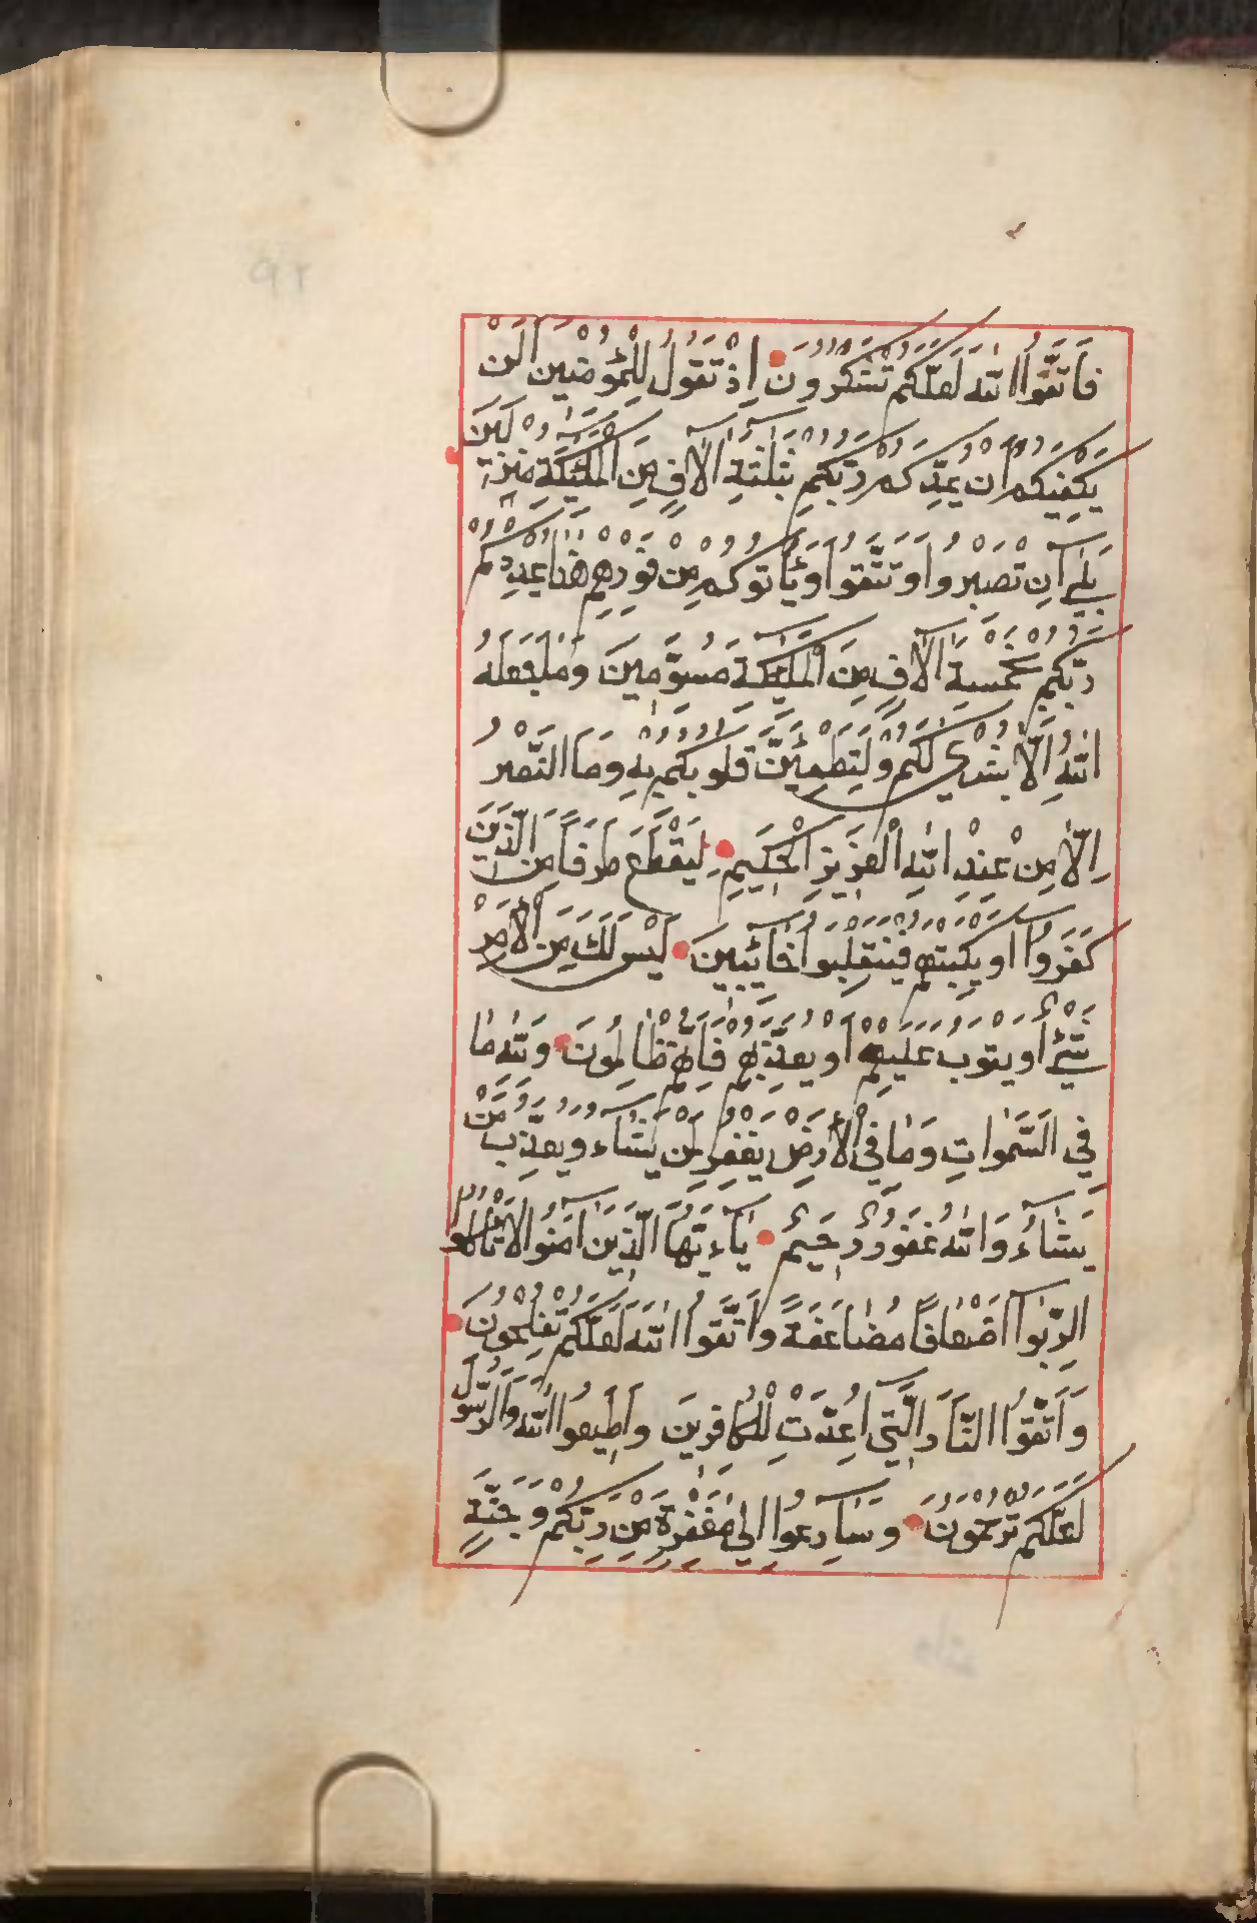 فَاتَّقُوا اللّٰهَ لَعَلَّكُمْ تَشْكُرُونَ اِذْ تَقُولُ لِلْمُؤْمِنِينَ اَلَنْ
يَكْفِيَكُمْ اَنْ يُمِدَّكُمْ رَبُّكُمْ بِثَلٰثَةِ اٰلَافٍ مِنَ الْمَلٰئِكَةِ مُنْزَلِينَ
بَلٰٓى اِنْ تَصْبِرُوا وَتَتَّقُوا وَيَأْتُوكُمْ مِنْ فَوْرِهِمْ هٰذَا يُمْدِدْكُمْ
رَبُّكُمْ بِخَمْسَةِ اٰلَافٍ مِنَ الْمَلٰٓئِكَةِ مُسَوِّمِينَ وَمَا جَعَلَهُ
اللّٰهُ اِلَّا بُشْرٰى لَكُمْ وَلِتَطْمَئِنَّ قُلُوبُكُمْ بِهِ وَمَا النَّصْرُ
اِلَّا مِنْ عِنْدِ اللّٰهِ الْعَزِيزِ الْحَكِيمِ لِيَقْطَعَ طَرَفًا مِنَ الَّذِينَ
كَفَرُوٓا اَوْ يَكْبِتَهُمْ فَيَنْقَلِبُوا خَآئِبِينَ لَيْسَ لَكَ مِنَ الْأَمْرِ
شَيْءٌ أَوْ يَتُوبَ عَلَيْهِمْ اَوْ يُعَذِّبَهُمْ فَاِنَّهُمْ ظَالِمُونَ وَلِلّٰهِ مَا
فِي السَّمٰوَاتِ وَمَا فِي الْأَرْضِ يَغْفِرُ لِمَنْ يَشَآء وَيُعَذِّبُ مَنْ
يَشَآءُ وَاللّٰهُ غَفُورٌ رَحِيمٌ يَآءَيُّهَا الَّذِينَ اٰمَنُوا لَا تَأْكُلُوا
الرِّبٰوٓا اَضْعَافًا مُضَاعَفَةً وَاتَّقُوا اللّٰهَ لَعَلَّكُمْ تُفْلِحُونَ
وَاتَّقُوا النَّارَ الَّتِٓي اُعِدَّتْ لِلْكَافِرِينَ وَاَطِيعُوا اللّٰهَ وَالرَّسُولَ
لَعَلَّكُمْ تُرْحَمُونَ وَسَارِعُوٓا اِلٰى مَغْفِرَةٍ مِنْ رَبِّكُمْ وَجَنَّةٍ